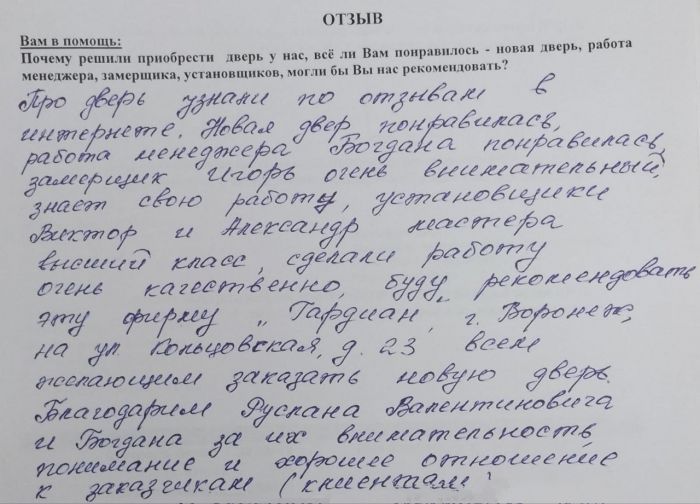 ОТЗЫВ
Вам в помощь:
Почему решили приобрести дверь у нас, всё ли Вам понравилось - новая дверь, работа
менеджера, замерщика, установщиков, могли бы Вы нас рекомендовать?
Про дверь узнали по отзывам в
интернете. Новая двер понравилась,
работа менеджера Богдана понравилась,
замерщик Игорь очень внимательный,
знает свою работу, установщики
Виктор и Александр мастера
высший класс, сделали работу
очень качественно, буду рекомендовать
эту фирму „Гардиан", г. Воронеж,
на ул. Кольцовская, д. 23 всем
желающим заказать новую дверь.
Благодарим Руслана Валентиновича
и Богдана за их внимательность,
понимание и хорошее отношение
к заказчикам (клиентам